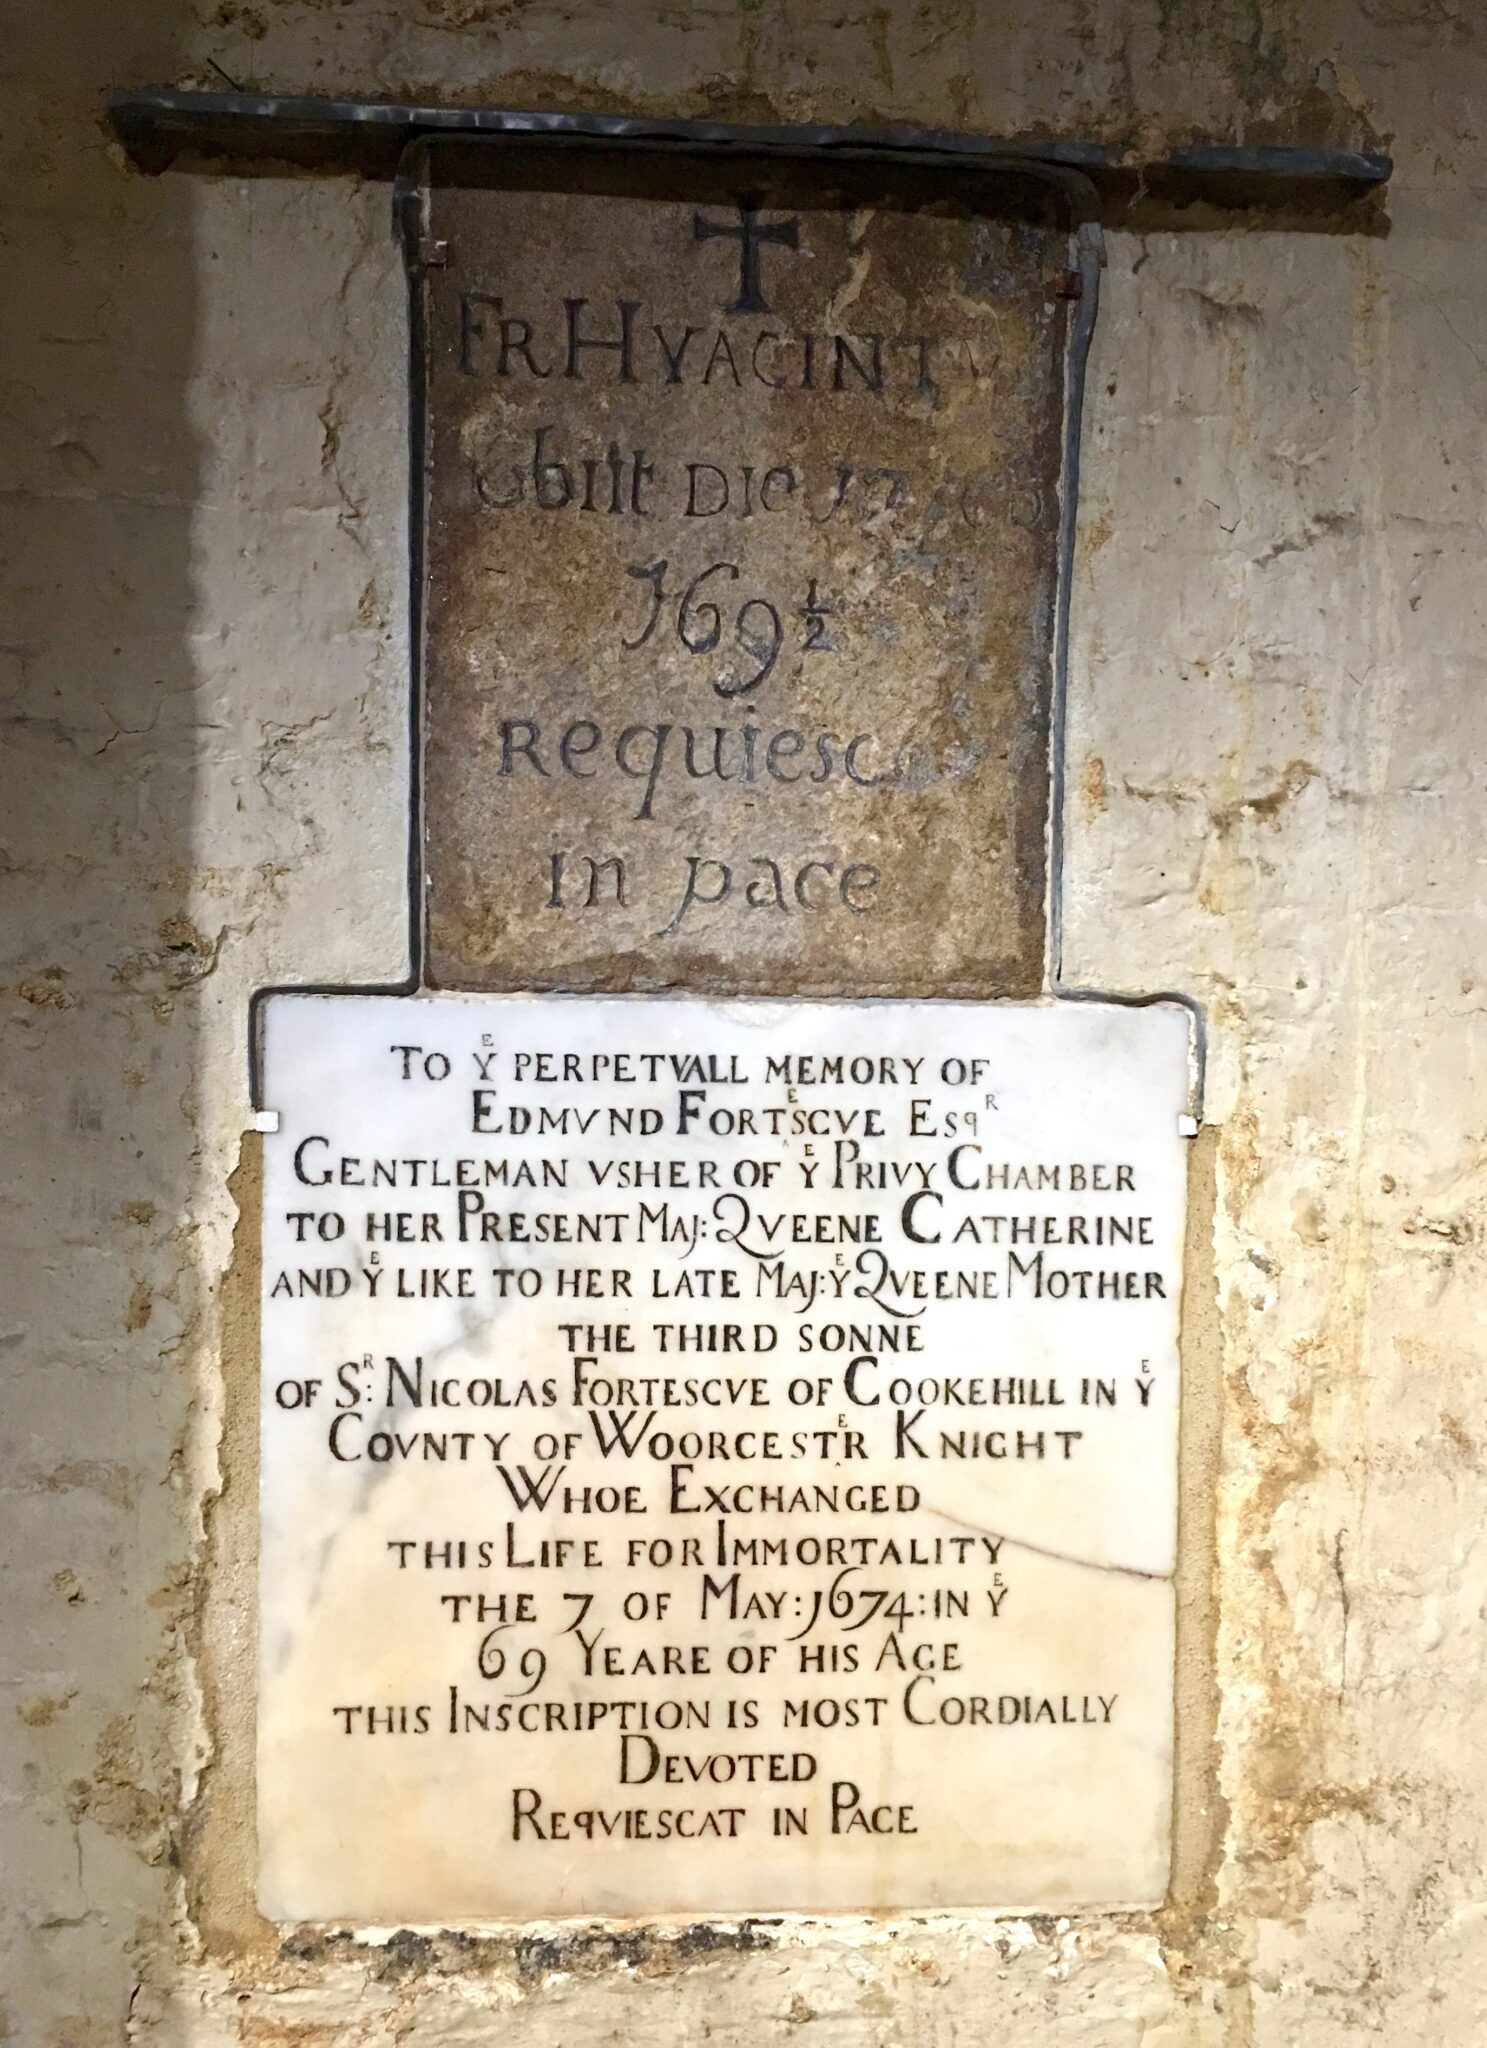 Fr Hyacint
Obiit Die 17
169 1/2
Requiesc
in pace
To Yᴱ PERPETVALL MEMORY OF
EDMVND FORTESCVE ESqᴿ
GENTLEMAN VSHER OF Yᴱ PRIVY CHAMBER
TO HER PRESENT MAJ: QVEENE CATHERINE
AND Yᴱ LIKE TO HER LATE MAJ: Yᴱ QVEENE MOTHER
THE THIRD SONNE
OF Sᴿ: NICOLAS FORTESCVE OF COOKEHILL IN Yᴱ
COVNTY OF WOORCESTER KNIGHT
WHOE EXCHANGED
THIS LIFE FOR IMMORTALITY
THE 7 OF MAY: 1674: IN Yᴱ
69 YEARE OF HIS AGE
THIS INSCRIPTION IS MOST CORDIALLY
DEVOTED
REqVIESCAT IN PACE